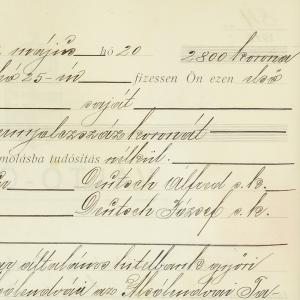 május hó 20 2800 korona
hó 25-én fizessen Ön ezen első
saját
nyolczszáz koronát
molásba tudósítás nélkül.
Deutsch Alfréd s. k.
Deutsch József s. k.
az általános hitelbank győri
az Alsólendvai Ta-